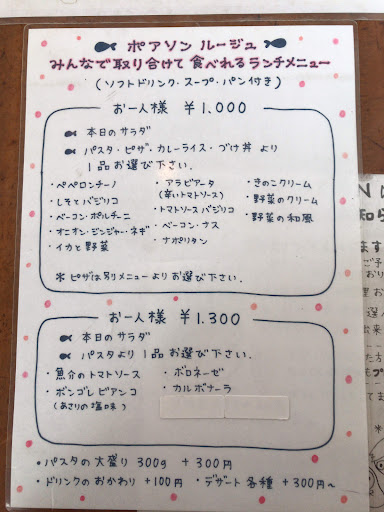 ポアソン ルージュ
みんなで取り合けて 食べれるランチメニュー
(ソフトドリンク・スープ・パン付き)
お一人様 ¥1,000
本日のサラダ
パスタ・ピザ・カレーライス・づけ丼 より
1品お選び下さい.
・ペペロンチーノ
・しそとバジリコ
・ベーコン・ポルチーニ
・オニオン・ジンジャー・ネギ
・イカと野菜
・アラビアータ
(辛いトマトソース)
・トマトソースバジリコ
・ベーコン・ナス
・ナポリタン
・きのこクリーム
・野菜のクリーム
・野菜の和風
*ピザは別リメニューよりお選び下さい.
お一人様 ¥1.300
本日のサラダ
パスタより 1品お選び下さい.
・魚介のトマトソース
・ボンゴレビアンコ
(あさりの塩味)
・ボロネーゼ
・カルボナーラ
・パスタの大盛り 300g +300円
・ドリンクのおかわり +100円 ・デザート各種 +300円〜